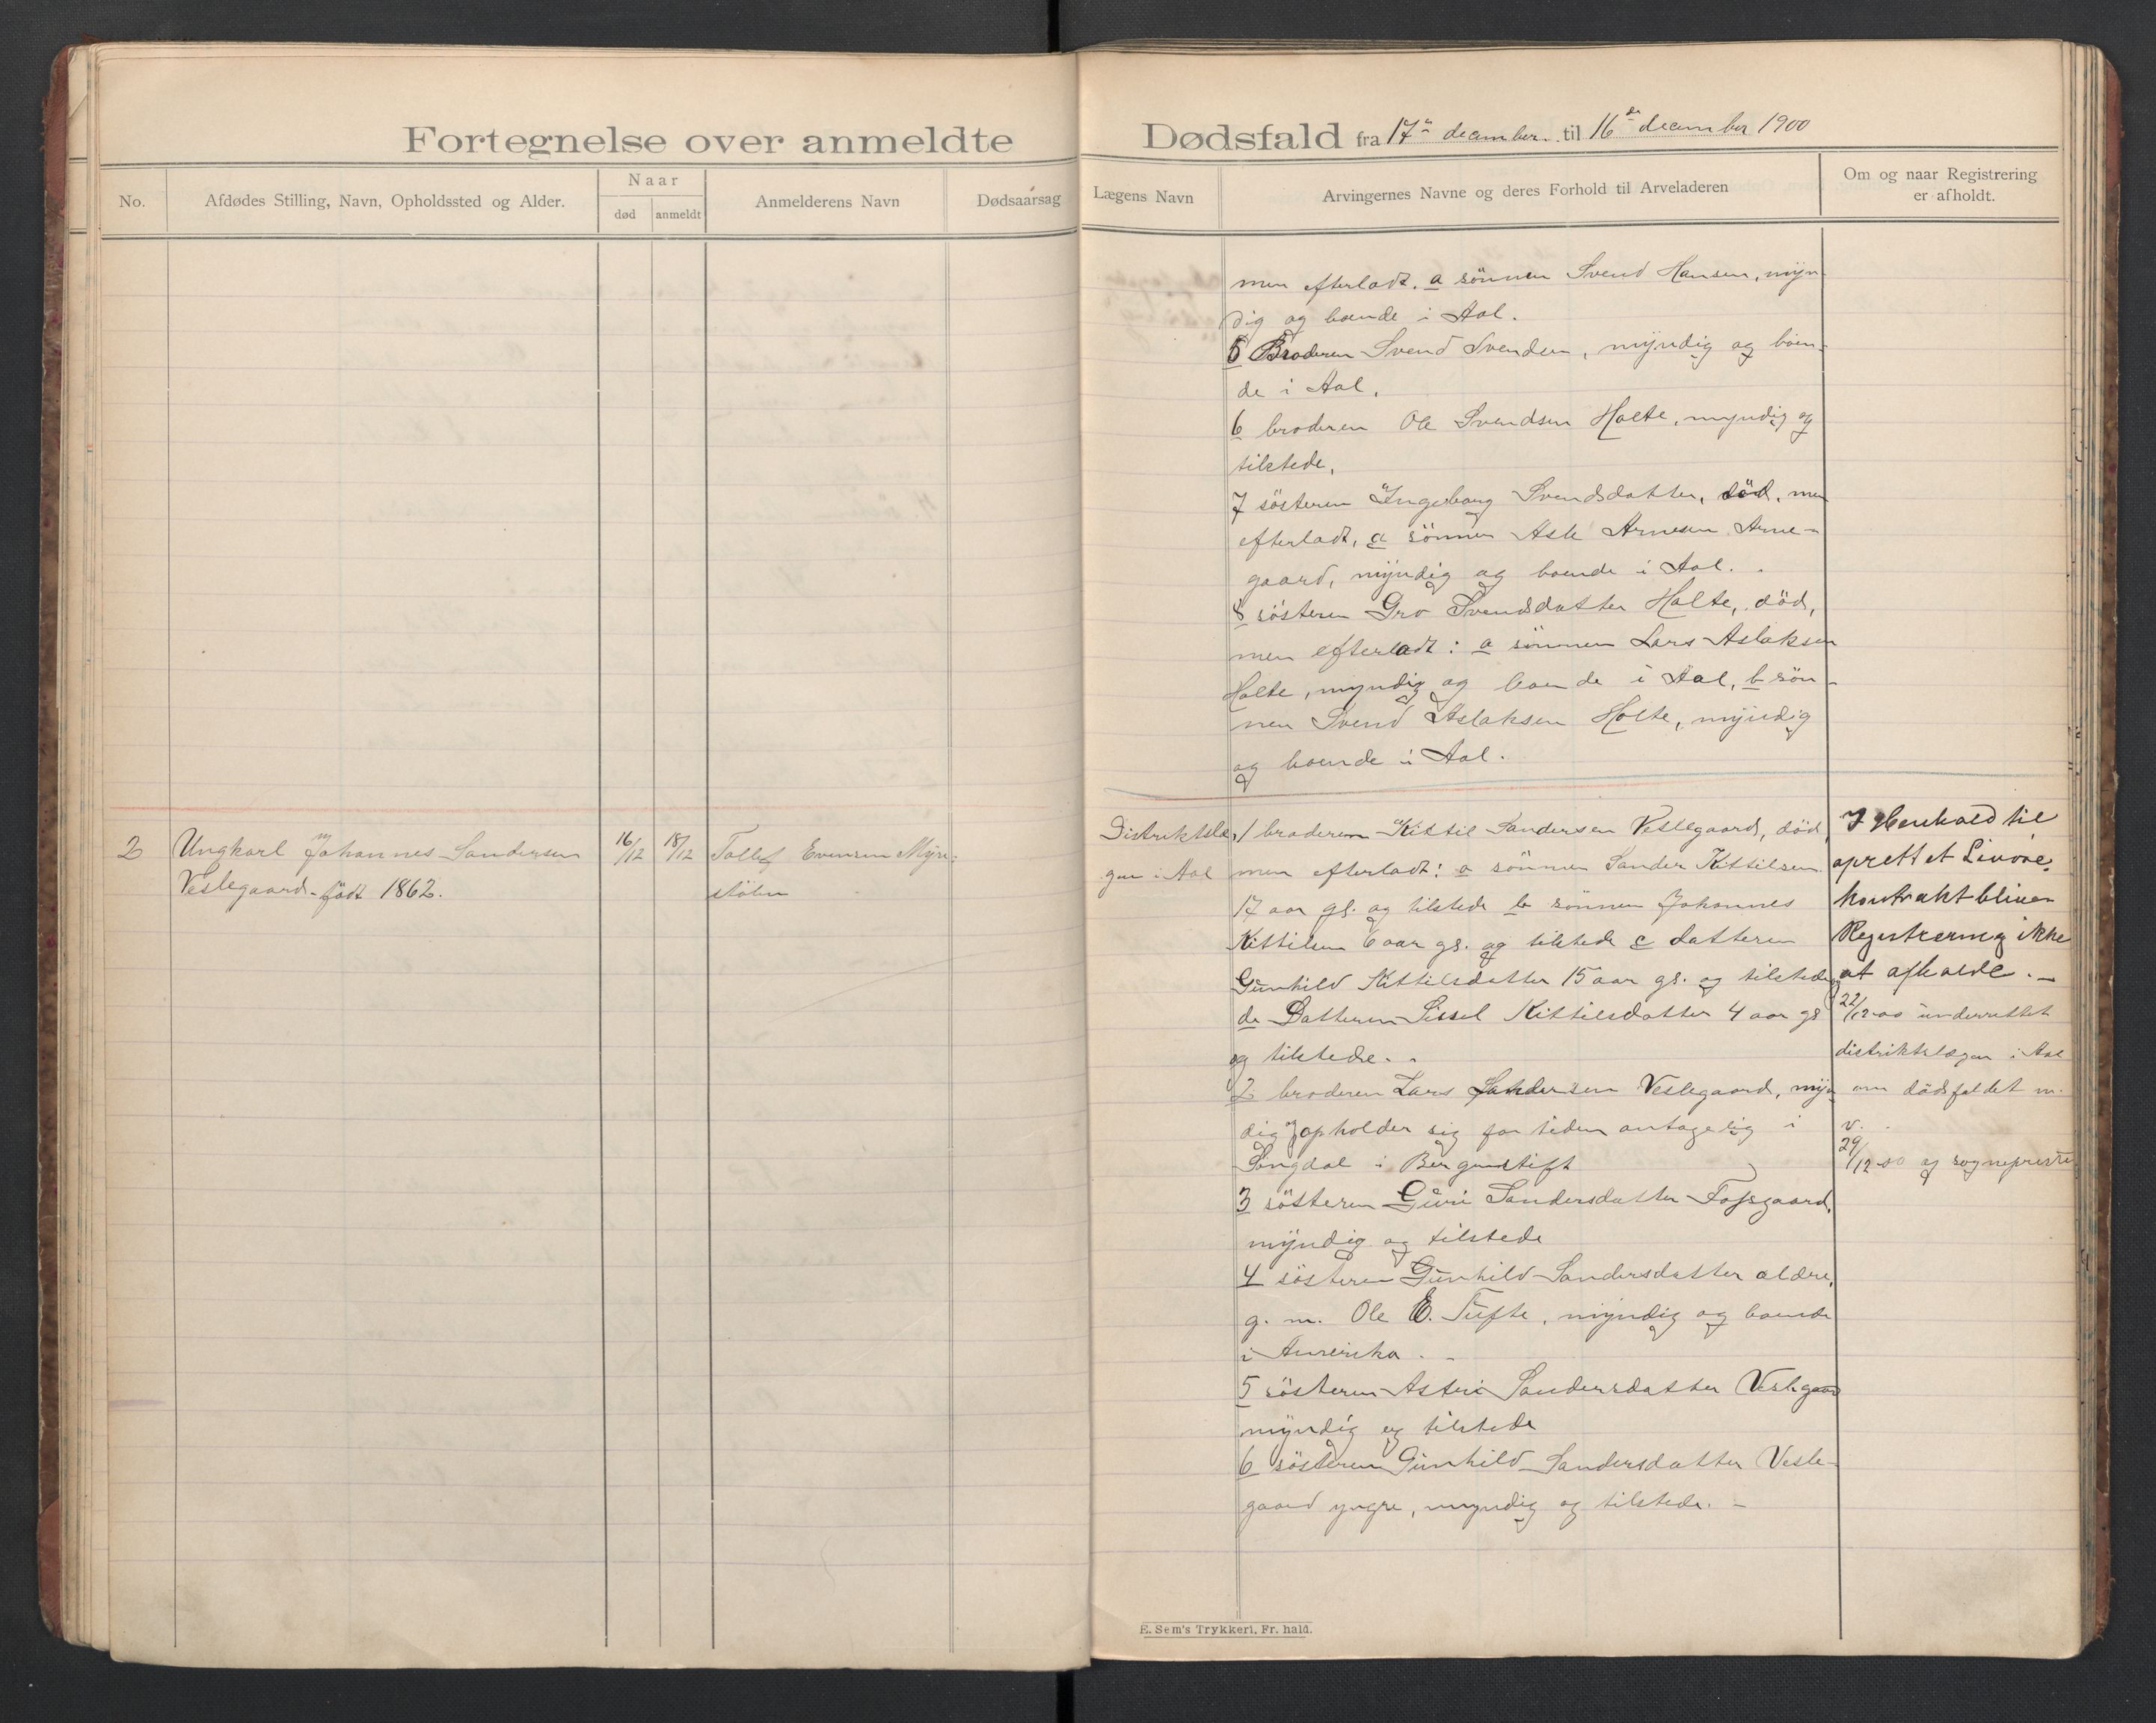 Fortegnelse over anmeldte Dødsfald fra 17de december til 16de december 1900
No.
Afdødes Stilling, Navn, Opholdssted og Alder.
Naar
død
anmeldt
Anmelderens Navn
Dødsaarsag
Lægens Navn
Arvingernes Navne og deres Forhold til Arveladeren
Om og naar Registrering
er afholdt.
men efterladt. a sönnen Svend Hansen, myn
dig og boende i Aal.
5 Broderen Svend Svendsen, myndig og boen-
de i Aal.
6 broderen Ole Svendsen Holte, myndig og
tilstede.
7 søsteren Ingeborg Svendsdatter, död, men
efterladt, a sönnen Asle Arnesen Arne-
gaard, myndig og boende i Aal.
8 søsteren Gro Svendsdatter Holte, död,
men efterladt: a sönnen Lars Aslaksen
Holte, myndig og boende i Aal, b sön-
nen Svend Aslaksen Holte, myndig
og boende i Aal.
2
Ungkarl Johannes Sandersen
Veslegaard - født 1862.
16/12
18/12
Tollef Evensen Myre-
stølen
Distriktslæ-
gen i Aal
1 broderen Kittil Sandersen Veslegaard, död
men efterladt: a sönnen Sander Kittilsen
17 aar gl. og tilstede b sönnen Johannes
Kittilsen 6 aar gl. og tilstede c datteren
Gunhild Kittilsdatter 15 aar gl. og tilstede
d Datteren Sissel Kittilsdatter 4 aar gl
og tilstede.
2 broderen Lars Sandersen Veslegaard, myn
dig opholder sig for tiden antagelig i
Sogndal i Bergenstift
3 søsteren Guri Sandersdatter Fossgaard,
myndig og tilstede
4 søsteren Gunhild Sandersdatter ældre,
g. m. Ole E. Tufte, myndig og boende
i Amerika.
5 søsteren Astri Sandersdatter Veslegaard
myndig og tilstede
6 søsteren Gunhild Sandersdatter Vesle-
gaard yngre, myndig og tilstede. -
I Henhold til
oprettet Livøre-
kontrakt bliver
Registrering ikke
at afholde. -
22/12-00 underrettet
distriktslægen i Aal
om dödsfaldet m.
v.
29/12-00 og sognepresten
E. Sem's Trykkeri, Fr. hald.